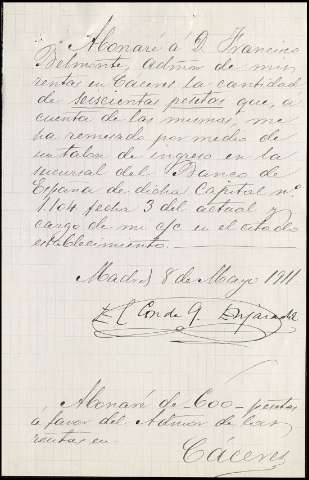 Abonaré á D. Francisco
Belmonte, admor de mis
rentas en Cáceres la cantidad
de seiscientas pesetas que, a
cuenta de las mismas, me
ha remesado por medio de
un talon de ingreso en la
sucursal del Banco de
España de dicha Capital nº
1104 fecha 3 del actual y
cargo de mi c/c en el citado
establecimiento.
Madrid 8 de Mayo 1911
El Conde de
Abonaré de 600 pesetas
a favor del Admor de las
rentas en
Cáceres